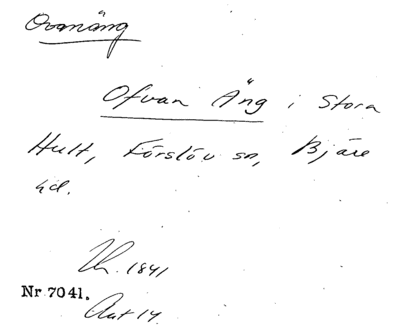 Ovanäng
Ofvan Äng i Stora
Hult, Förslöv sn, Bjäre
hd.
1841
Nr 7041.
Aut 14